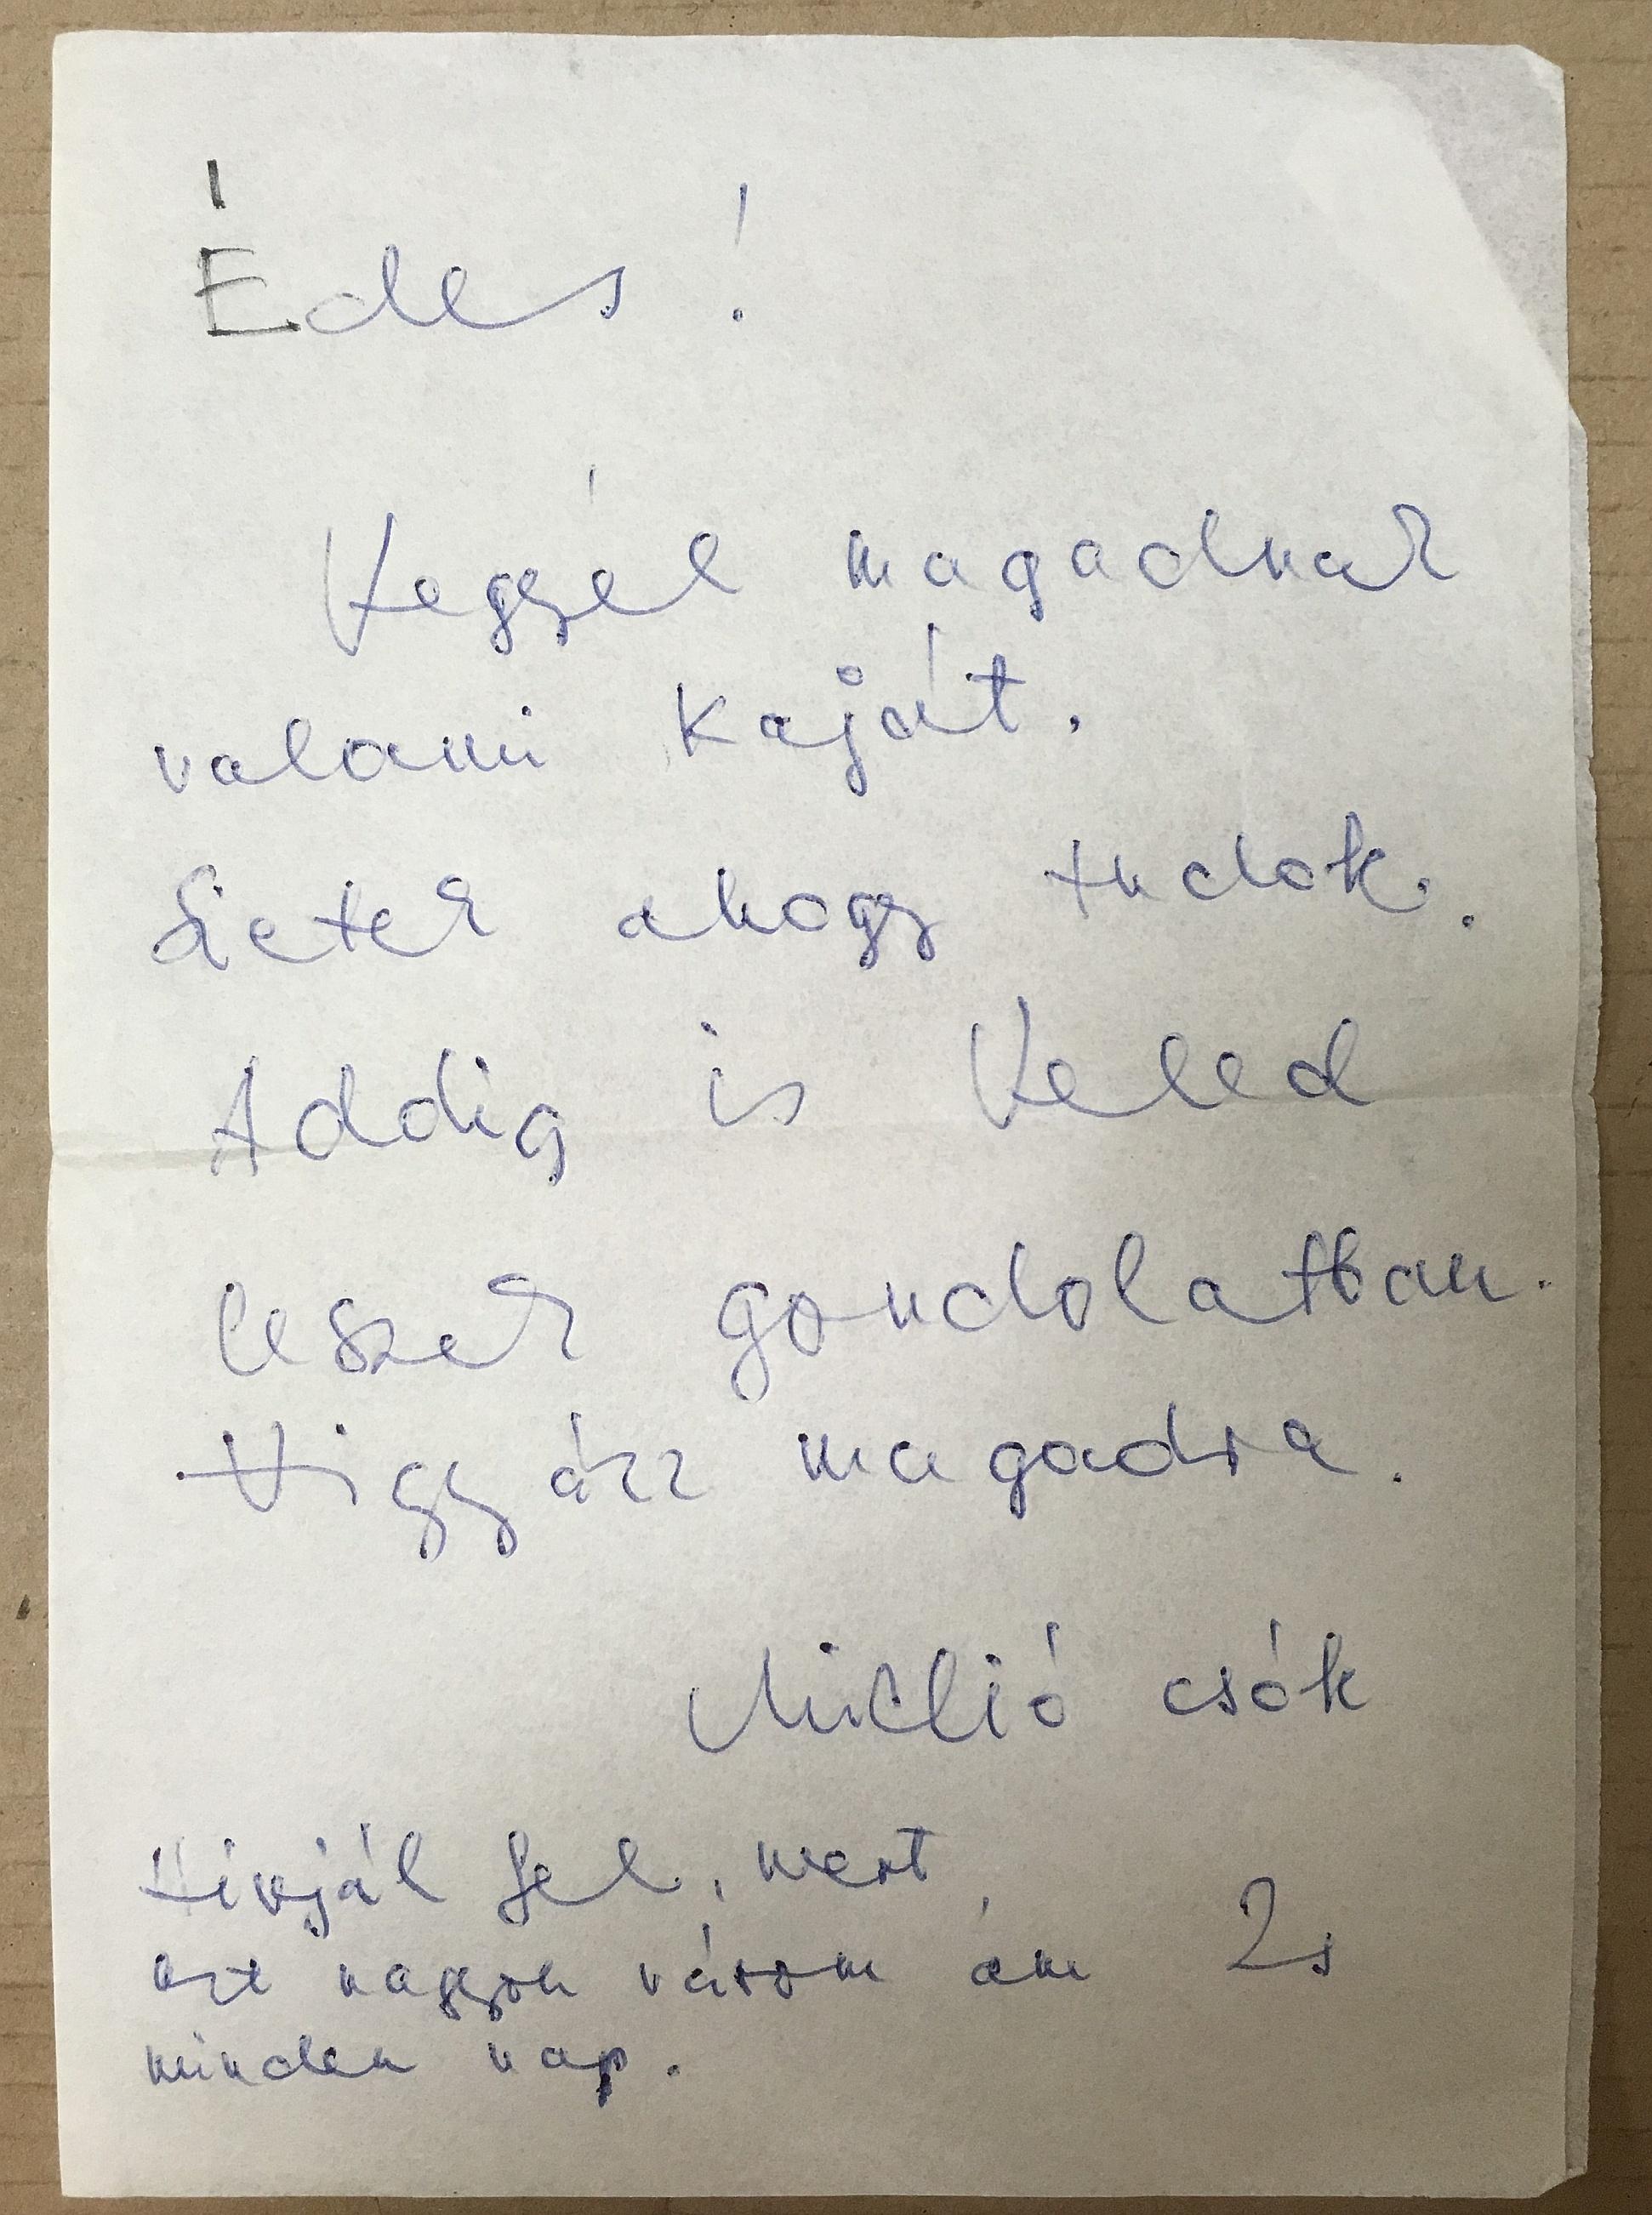 Édes!
Vegyél magadnak
valami kaját.
Sietek ahogy tudok.
Addig is Veled
leszek gondolatban.
Vigyázz magadra.
Millió csók
Hívjál fel, mert
ezt nagyon várom ám
Zs
minden nap.